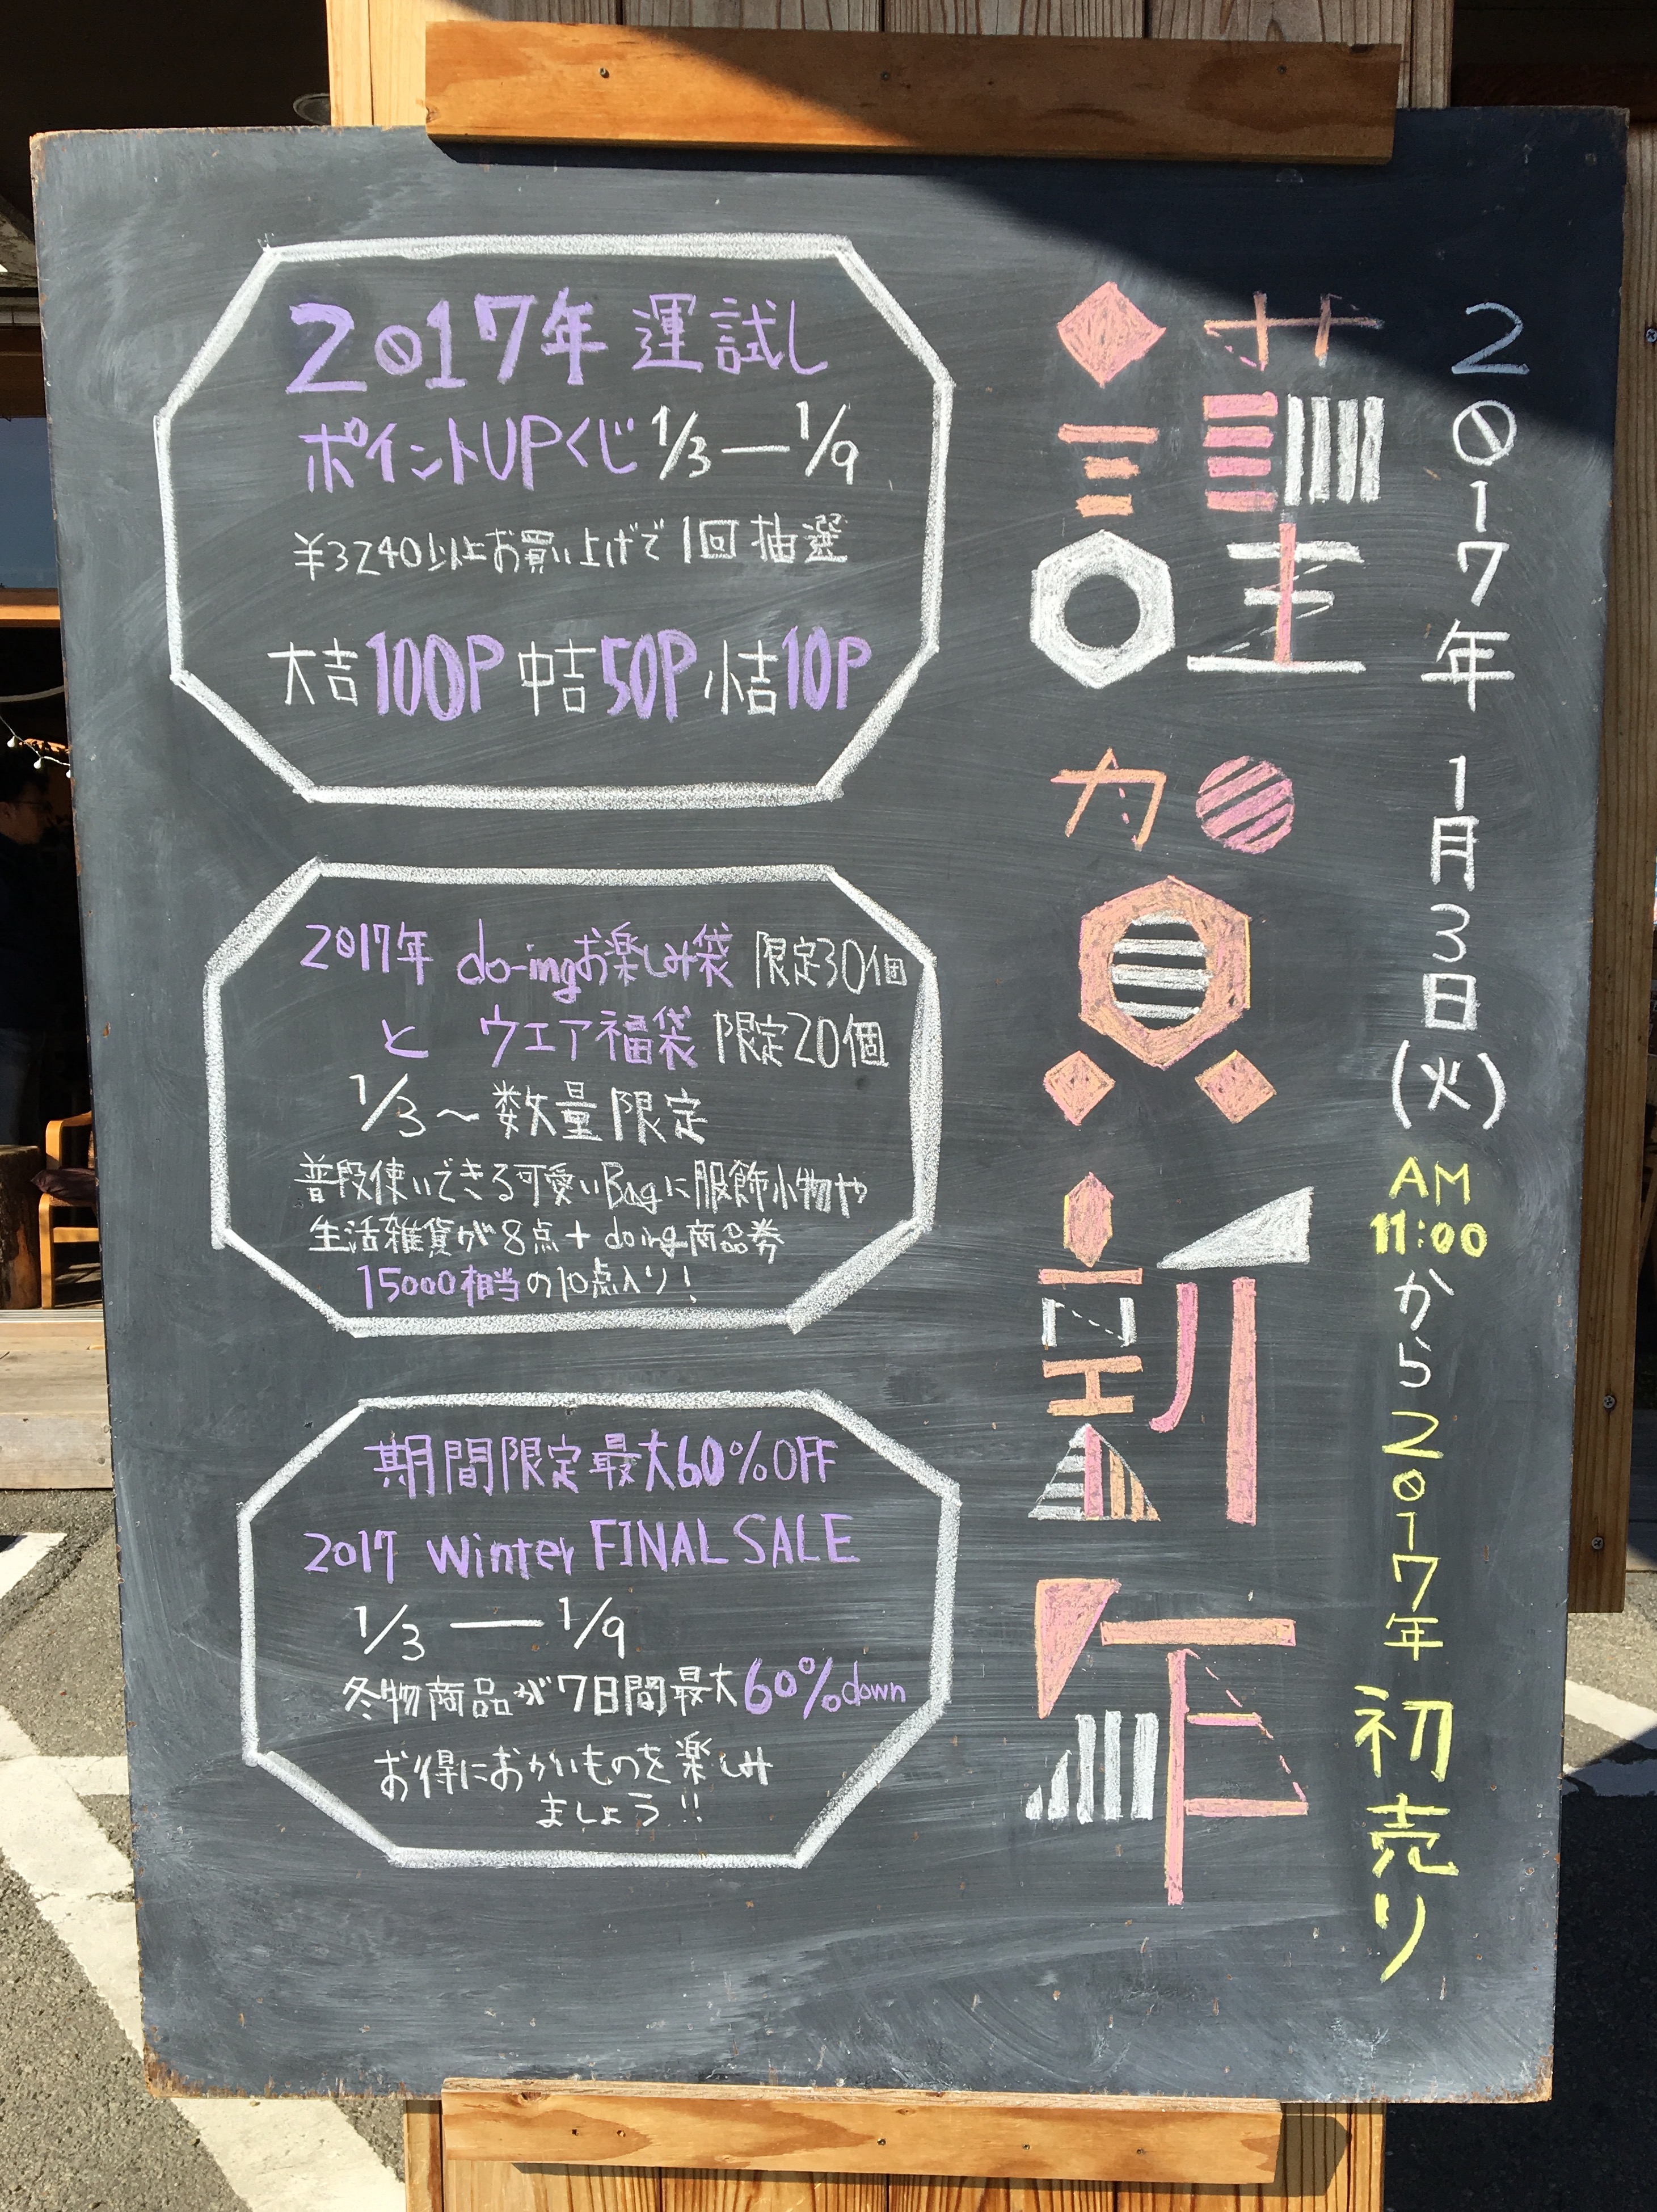 2017年 1月3日(火) AM 11:00から2017年 初売り
謹賀新年
2017年 運試し
ポイントUPくじ 1/3―1/9
¥3240以上お買い上げで1回抽選
大吉100P 中吉50P 小吉10P
2017年 do-ingお楽しみ袋 限定30個
と ウエア福袋 限定20個
1/3〜数量限定
普段使いできる可愛いBagに服飾小物や
生活雑貨が8点+do-ing商品券
15000相当の10点入り!
期間限定最大60%OFF
2017 Winter FINAL SALE
1/3―1/9
冬物商品が7日間最大60%down
お得におかいものを楽しみ
ましょう!!